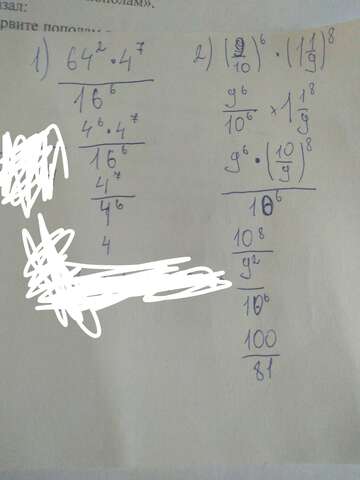 зал:
рвите пополам
1) 64² • 4⁷
16⁶
4⁶ • 4⁷
16⁶
4⁷
4⁶
4
2) (9/10)⁶ • (1 1/9)⁸
9⁶/10⁶ × 1 1/9⁸
9⁶ • (10/9)⁸
10⁶
10⁸
9²
10⁶
100
81